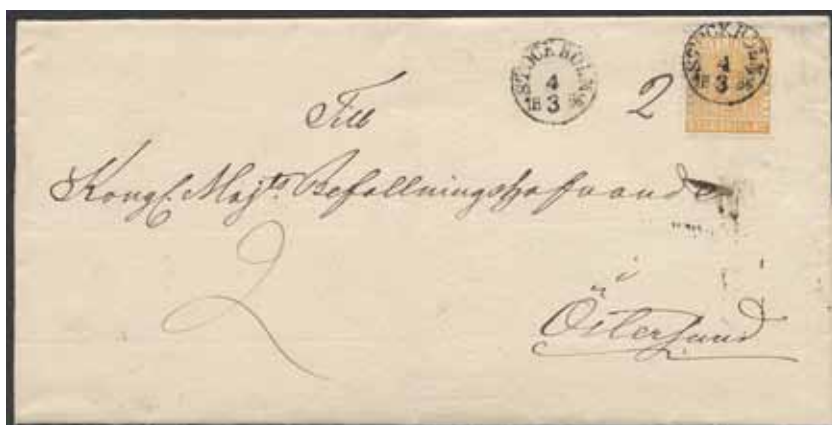 STOCKHOLM
4
3
STOCKHOLM
4
3
2
Till
Kongl. Majts. Befallningshafvande
2
i
Östersund